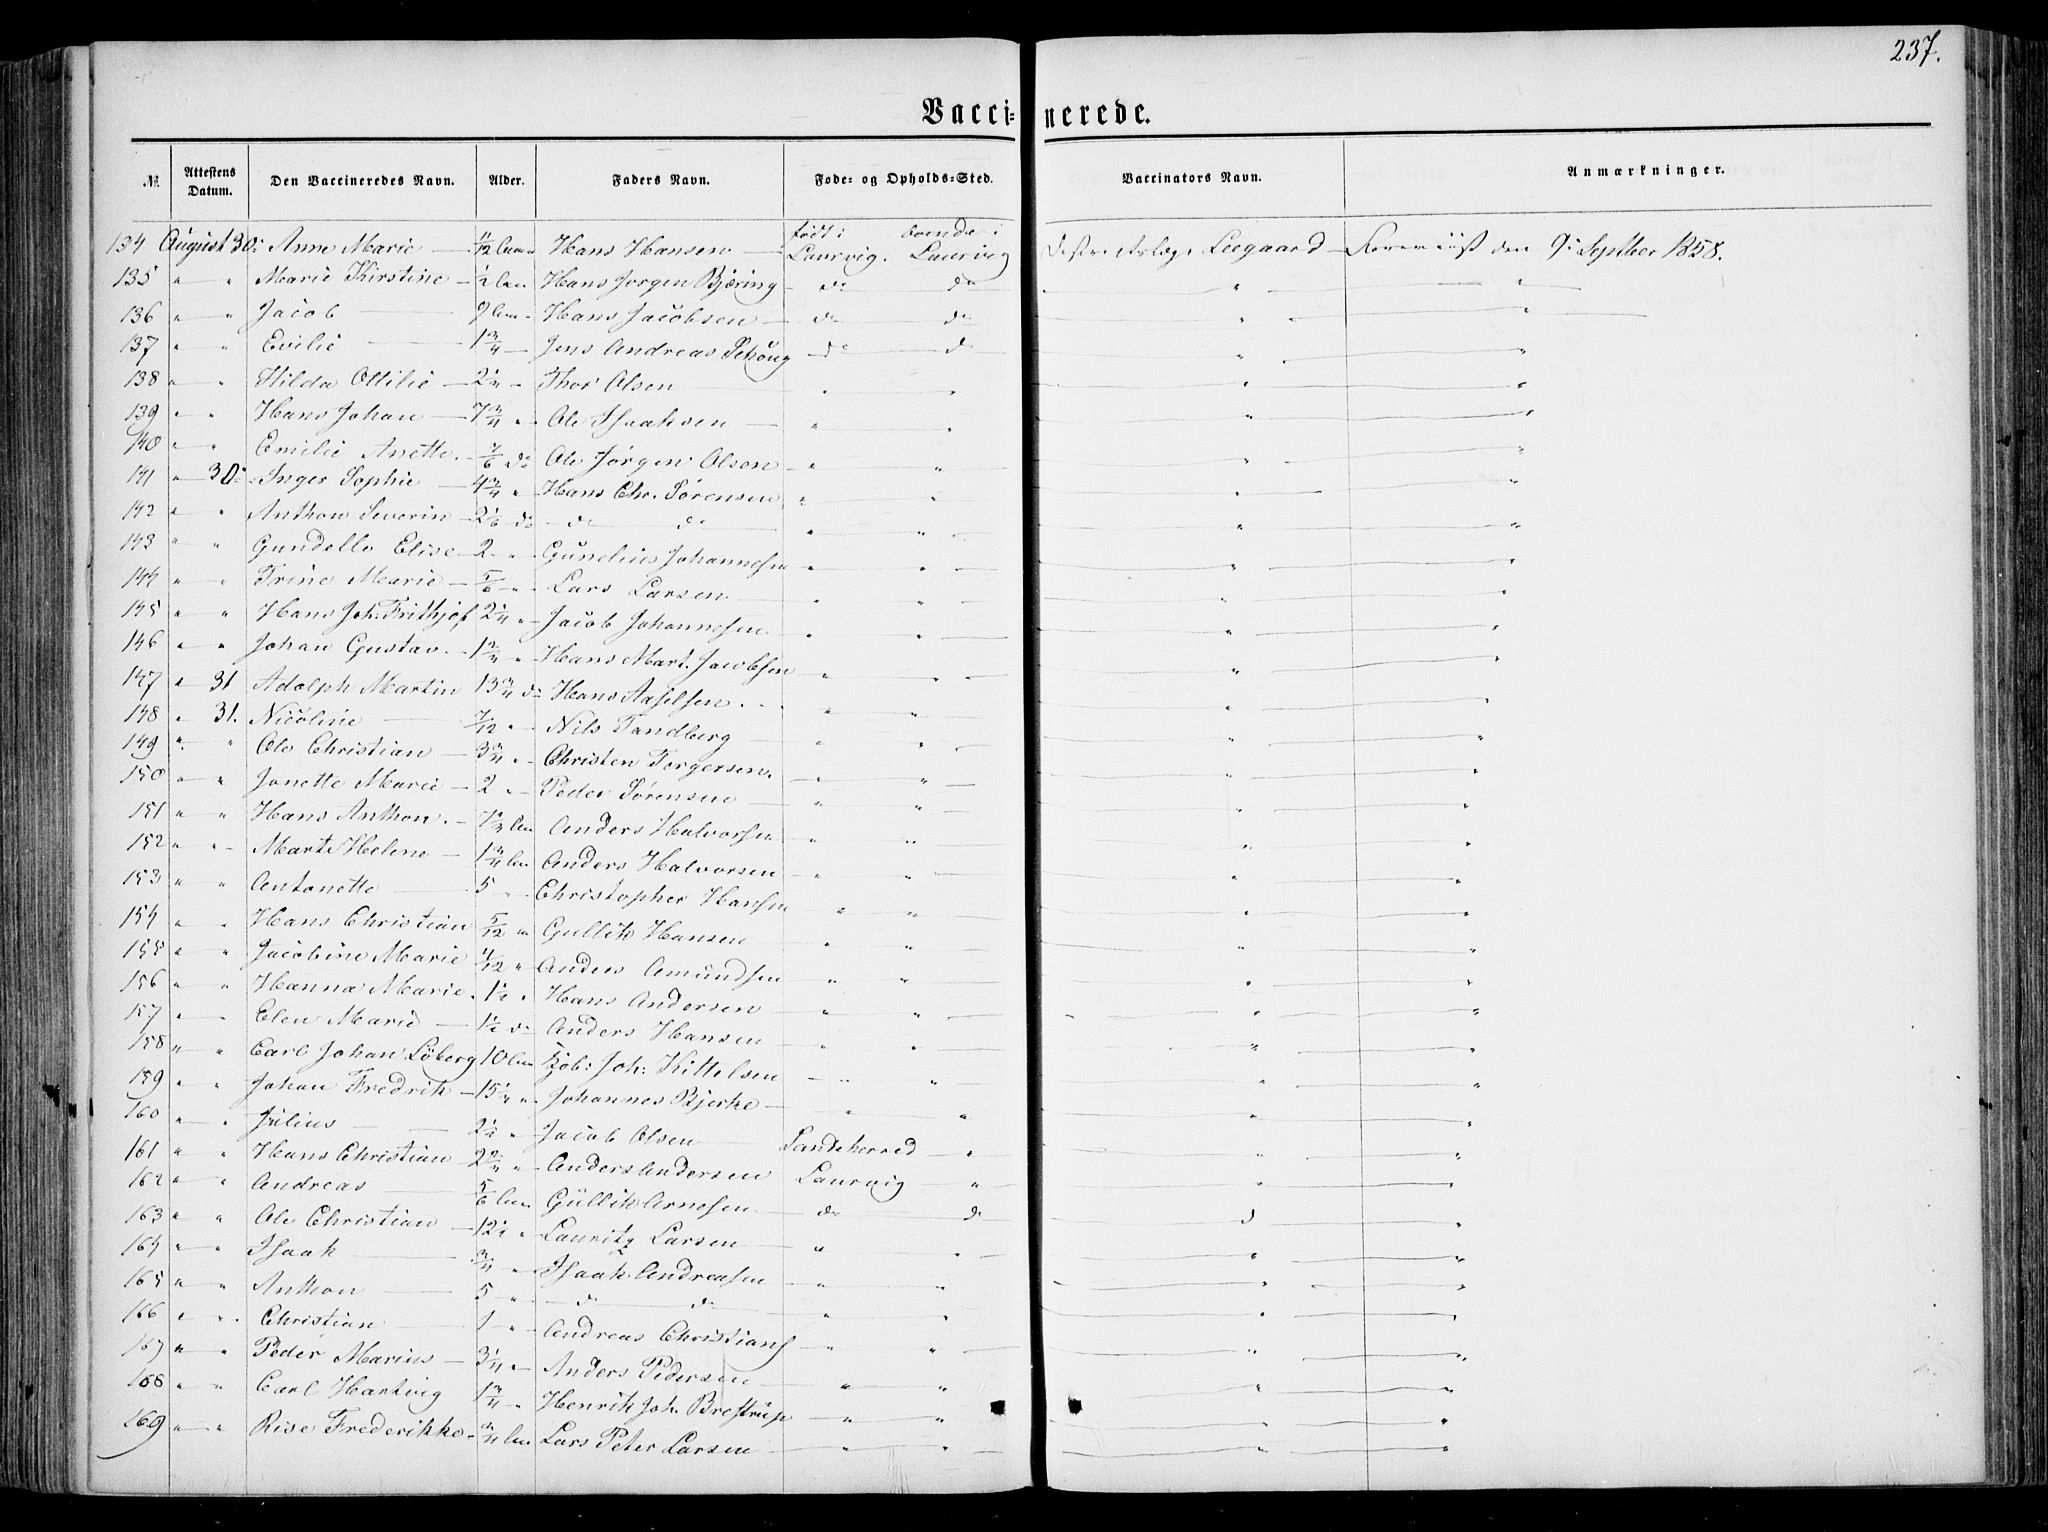 237.
Vaccinerede.
No. Attestens Datum. Den Vaccineredes Navn. Alder. Faders Navn. Føde- og Opholds-Sted. Vaccinators Navn. Anmærkninger.
født i boende i
134 August 30: Anne Marie 11/12 Hans Hansen Laurvig. Laurvig Leegaard den 9: Septber 1858.
135 " " Marie Kirstine ½ Hans Jørgen Bjæring do do " "
136 " " Jacob 9 Hans Jacobsen do do " "
137 " " Evilie 1¾ Jens Andreas do do " "
138 " " Hilda Ottilie 2¼ Thor Olsen " " " "
139 " " Hans Johan 7¾ " Ole Isaaksen " " " "
140 " " Emilie Anette 7/6 do Ole Jørgen Olsen " " " "
141 " 30: Inger Sophie 4¾ " Hans Chr. Sørensen " " " "
142 " " Anthon Severin 2⅙ do do do " " " "
143 " " Gundelle Elise 2 " Gunelius Johannesen " " " "
144 " " Trine Marie 5/6 " Lars Larsen " " " "
145 " " Hans Joh. Frithjof 2¼ " Jacob Johannesen " " " "
146 " " Johan Gustav 1¾ " Hans Mart. Jacobsen " " " "
147 " 31 Adolph Martin 13¾ do Hans Axelsen " " " "
148 " 31. Nicoline 7/12 " Nils Tandberg " " " "
149 " " Ole Christian 3¾ " Christen Torgersen. " " " "
150 " " Jonette Marie 2 " Peder Sørensen " " " "
151 " " Hans Anthon 7¼ Anders Halvorsen " " " "
152 " " Marte Helene 1¾ Anders Halvorsen " " " "
153 " " Antonette 5 " Christopher Hansen " " " "
154 " " Hans Christian 5/12 " Gullik Hansen " " " "
155 " " Jacobine Marie " Anders Amundsen " " " "
156 " " Hanna Marie 1½ " Hans Andersen " " " "
157 " " Elen Marie 1½ do Anders Hansen " " " "
158 " " Carl Johan Löberg 10 Joh: Kittelsen " " " "
159 " " Johan Fredrik 15¼ " Johannes Bjerke " " " "
160 " " Julius 2½ " Jacob Olsen Sandeherred " " "
161 " " Hans Christian 2¾ " Anders Andersen Laurvig " " "
162 " " Andreas 5/6 Gullik Arnesen do do d "
163 " " Ole Christian 12½ " Lauritz Larsen " " " "
164 " " Isaak ¾ " Isaak Andreasen " " " "
165 " " Anthon 5 " do do " " " "
166 " " Christian 1 " Andreas Christians " " " "
167 " " Peder Marius 3¼ " Anders Pedersen " " " "
168 " " Carl Hartvig 1¾ " Henrik Joh. Brestrup " " " "
169 " " Rise Frederikke ¾ Lars Peter Larsen " " " "